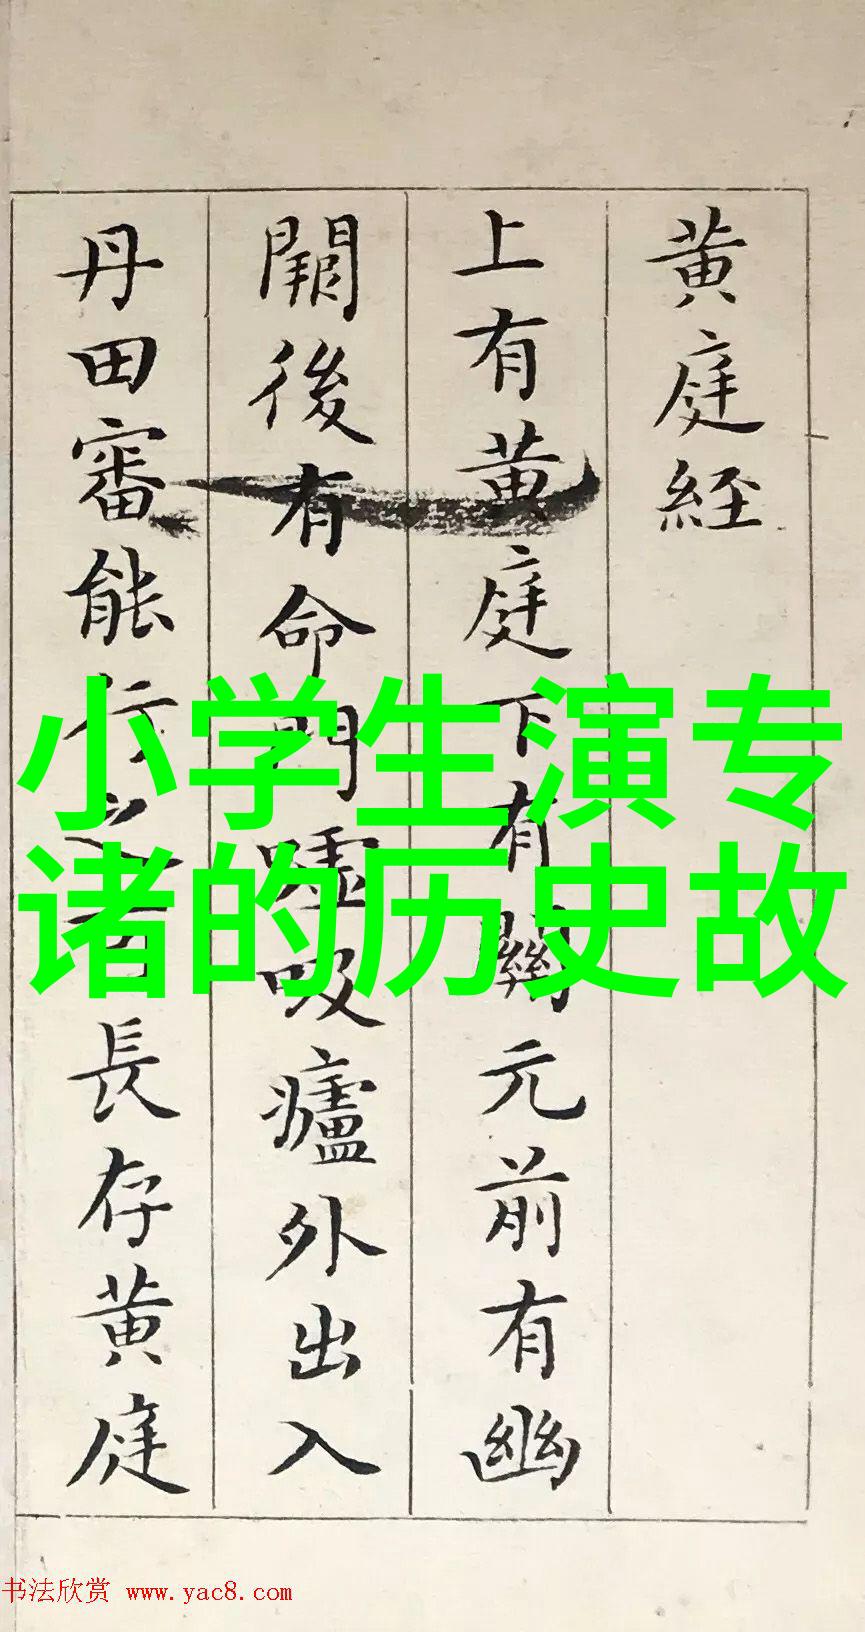 黄庭经
上有黄庭下有關元前有幽
闕後有命門嘘吸廬外出入
丹田審能行之可長存黄庭
小学生演专
诸的历史故
书法欣赏 www.yac8.com